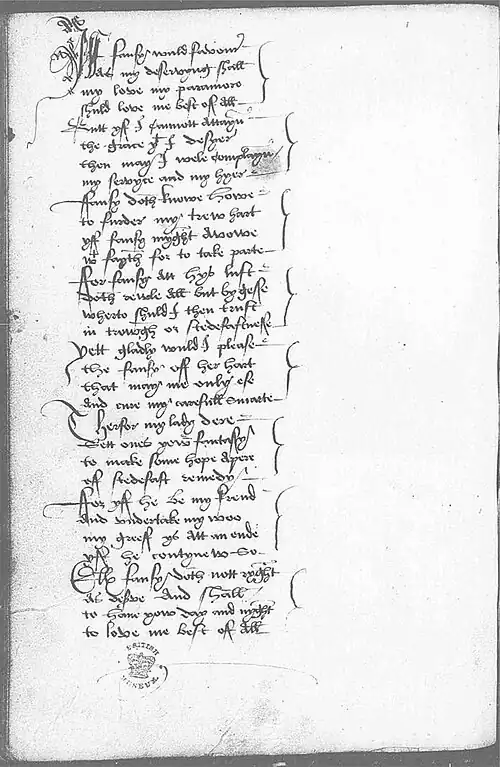 Yff fansy wuld favour
As my deservyng shall
my love my paramore
shuld love me best of all
Butt yf I cannott attayn
the grace yt I desyer
then may I wele complayn
my servyce and my hyer
Ffansy doth knowe howe
to furder my trew hart
yff fansy myght avowe
wt fayth for to take parte
For fansy att hys lust
doth rewle all but by gesse
wherto shuld I then trust
in trowgh or stedefastnesse
yett gladly wuld I please
the fansy off her hart
that may me only ese
and cure my carefull smarte
Therfor my lady dere
Sett ones yowr fantasy
to make som hope apere
off stedefast remedy
For yff he be my frend
and vndertake my woo
my greeff ys att an ende
yff he contynew so
Elles fansy doth nott ryght
As deserve and shall
to have yow day and nyght
to love me best of all
BRITISH MUSEUM